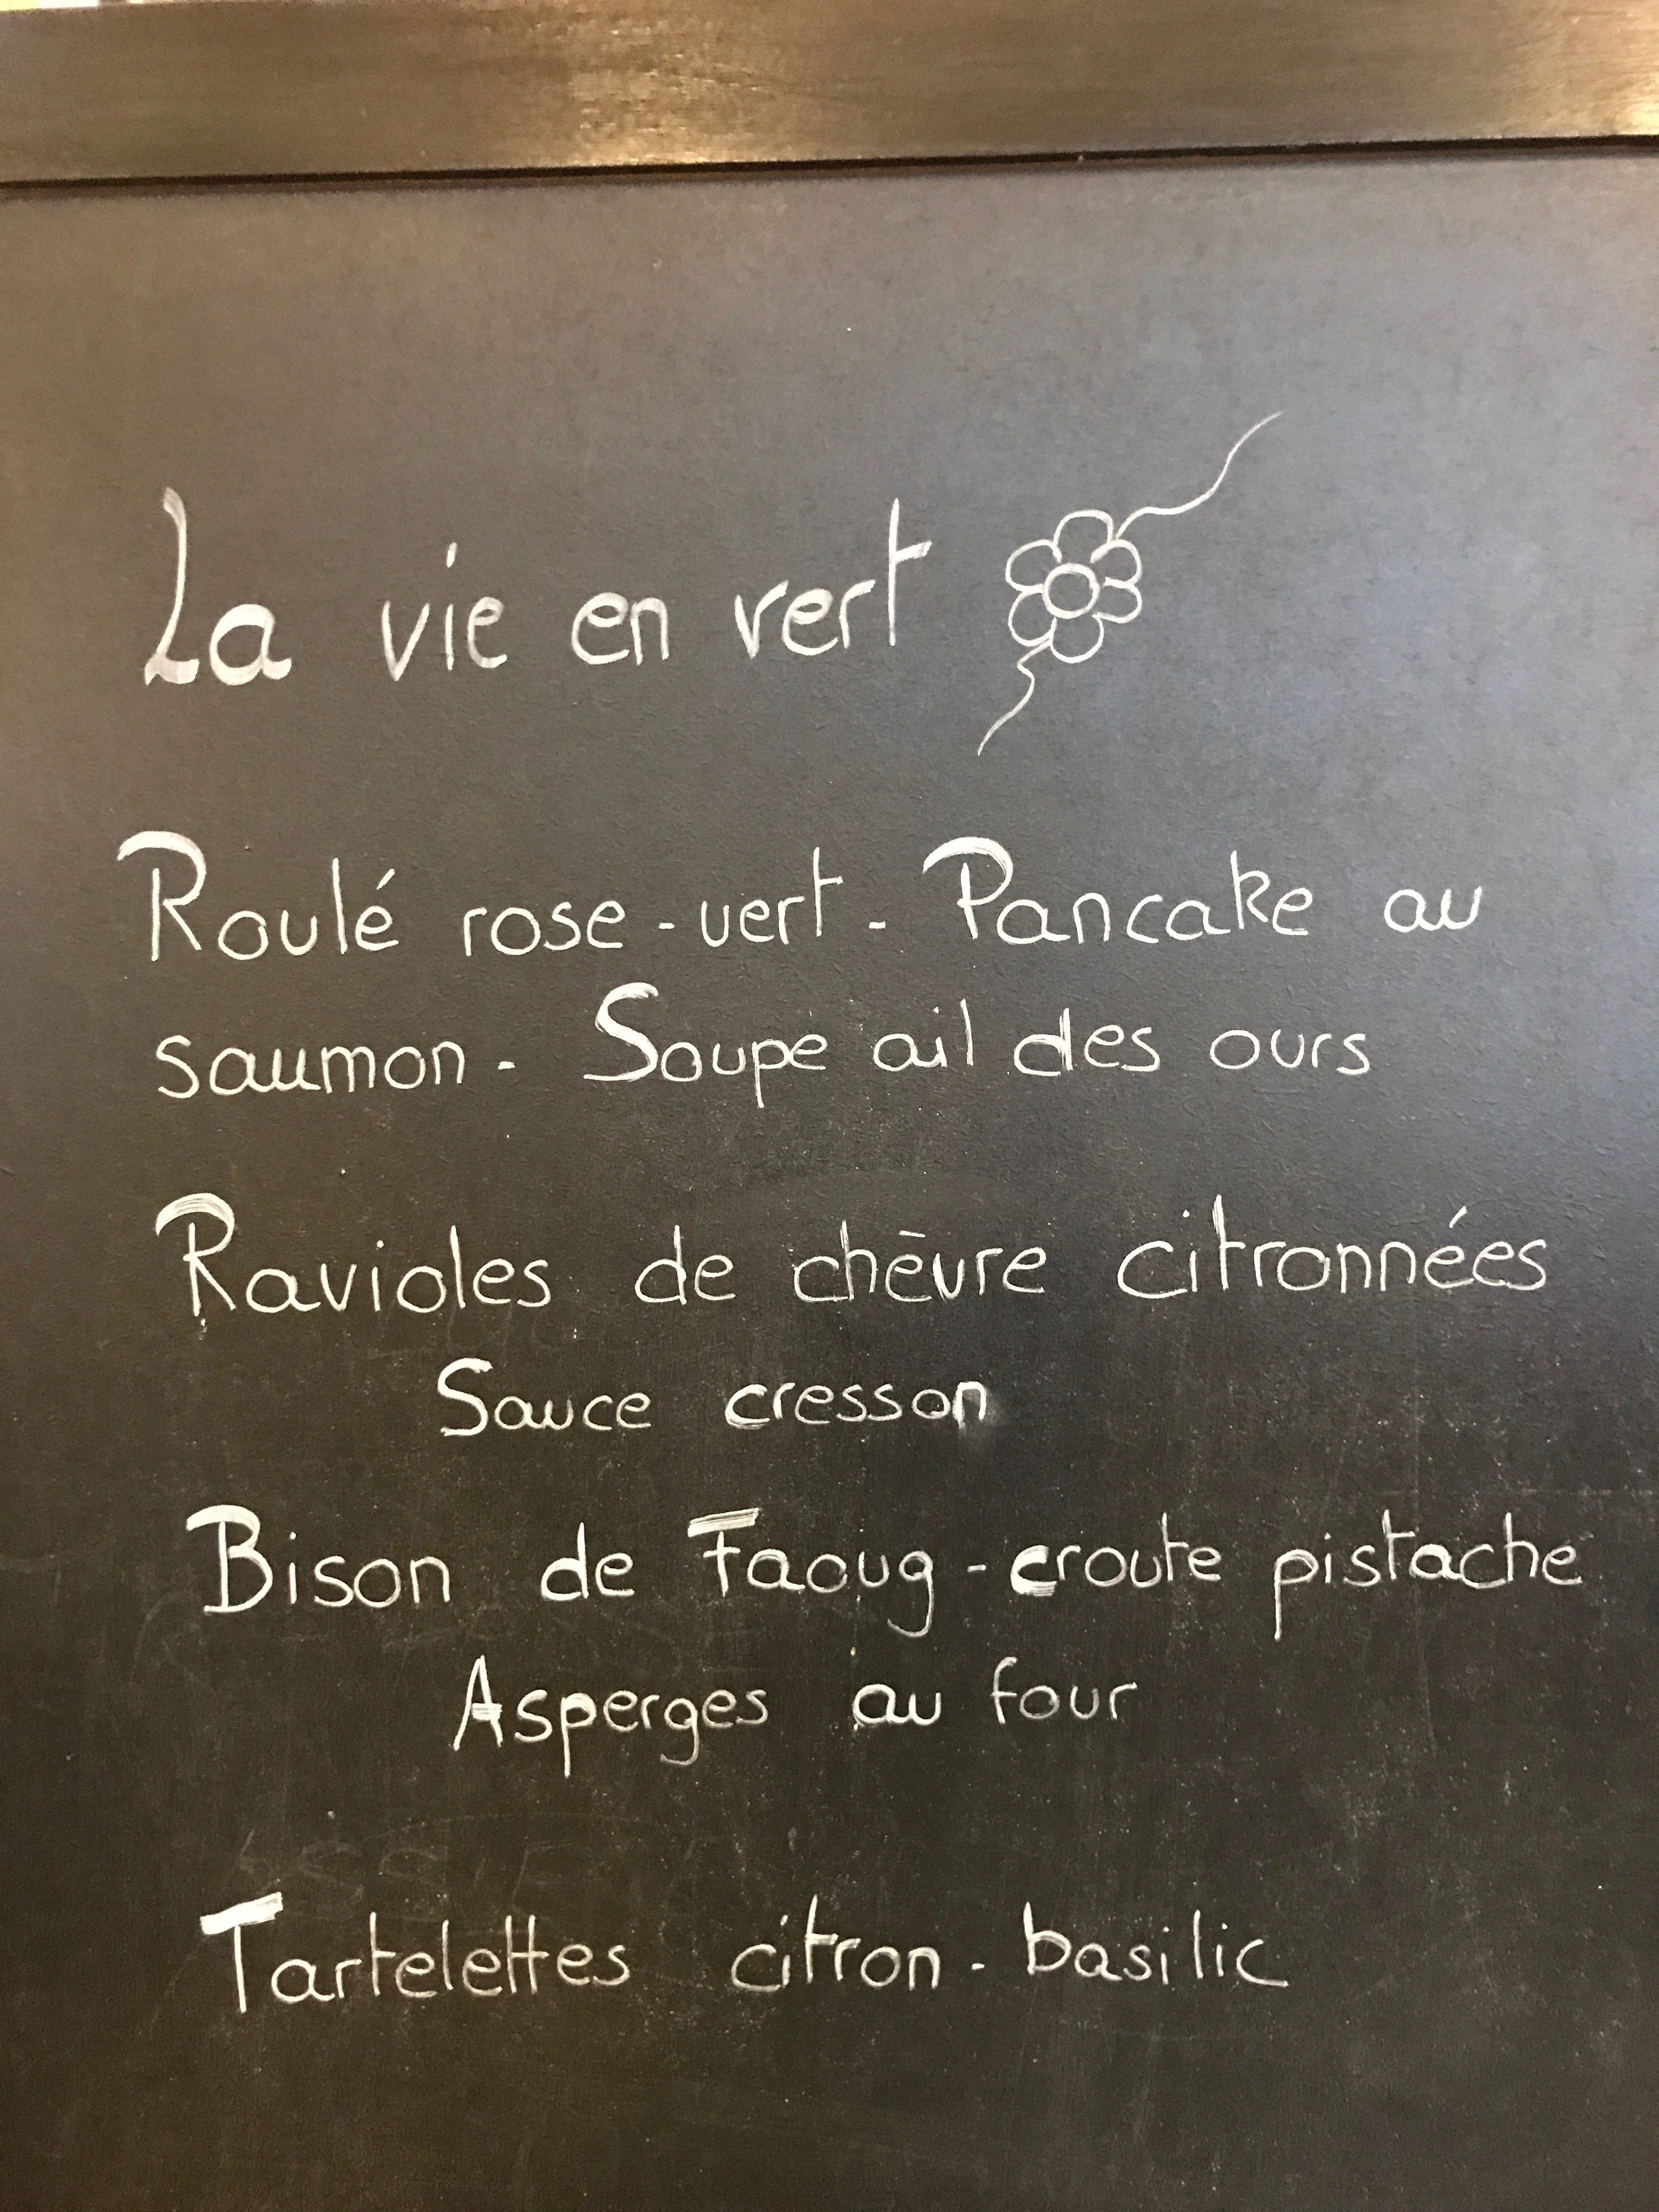 La vie en vert
Roulé rose-vert - Pancake au
saumon - Soupe ail des ours
Ravioles de chèvre citronnées
Sauce cresson
Bison de Faoug - croute pistache
Asperges au four
Tartelettes citron - basilic